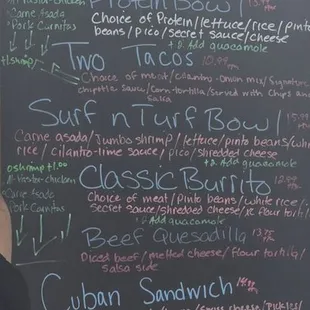 Protein Bowl
• Carne Asada
• Pork Carnitas
Choice of Protein/lettuce/rice/pinto
beans/pico/secret sauce/cheese
+2. Add guacamole
+1.shrimp
Two Tacos 10.99
Choice of meat/cilantro-onion mix/signature
chipotle sauce/corn tortilla/served with chips and
salsa
Surf n Turf Bowl 15.99
Carne asada/Jumbo shrimp/lettuce/pinto beans/white
rice/cilantro-lime sauce/pico/shredded cheese
+2. Add guacamole
Classic Burrito 12.99
Carne Asada
Pork Carnitas
Choice of meat/pinto beans/white rice/
secret sauce/shredded cheese/xl flour tortilla
Add guacamole
Beef Quesadilla 13.75
Diced beef/melted cheese/flour tortilla/
salsa side
Cuban Sandwich
swiss cheese/pickles/